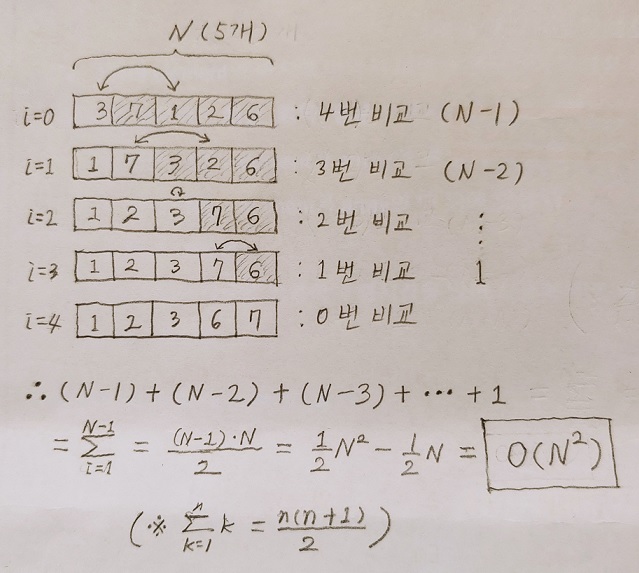 N (5개)
i=0 3 7 1 2 6 : 4번 비교 (N-1)
i=1 1 7 3 2 6 : 3번 비교 (N-2)
i=2 1 2 3 7 6 : 2번 비교 :
i=3 1 2 3 7 6 : 1번 비교 1
i=4 1 2 3 6 7 : 0번 비교
∴ (N-1) + (N-2) + (N-3) + ⋯ + 1
= \sum_{i=1}^{N-1} = \frac{(N-1)·N}{2} = \frac{1}{2}N² - \frac{1}{2}N = O(N²)
(※ \sum_{k=1}^{n} k = \frac{n(n+1)}{2})